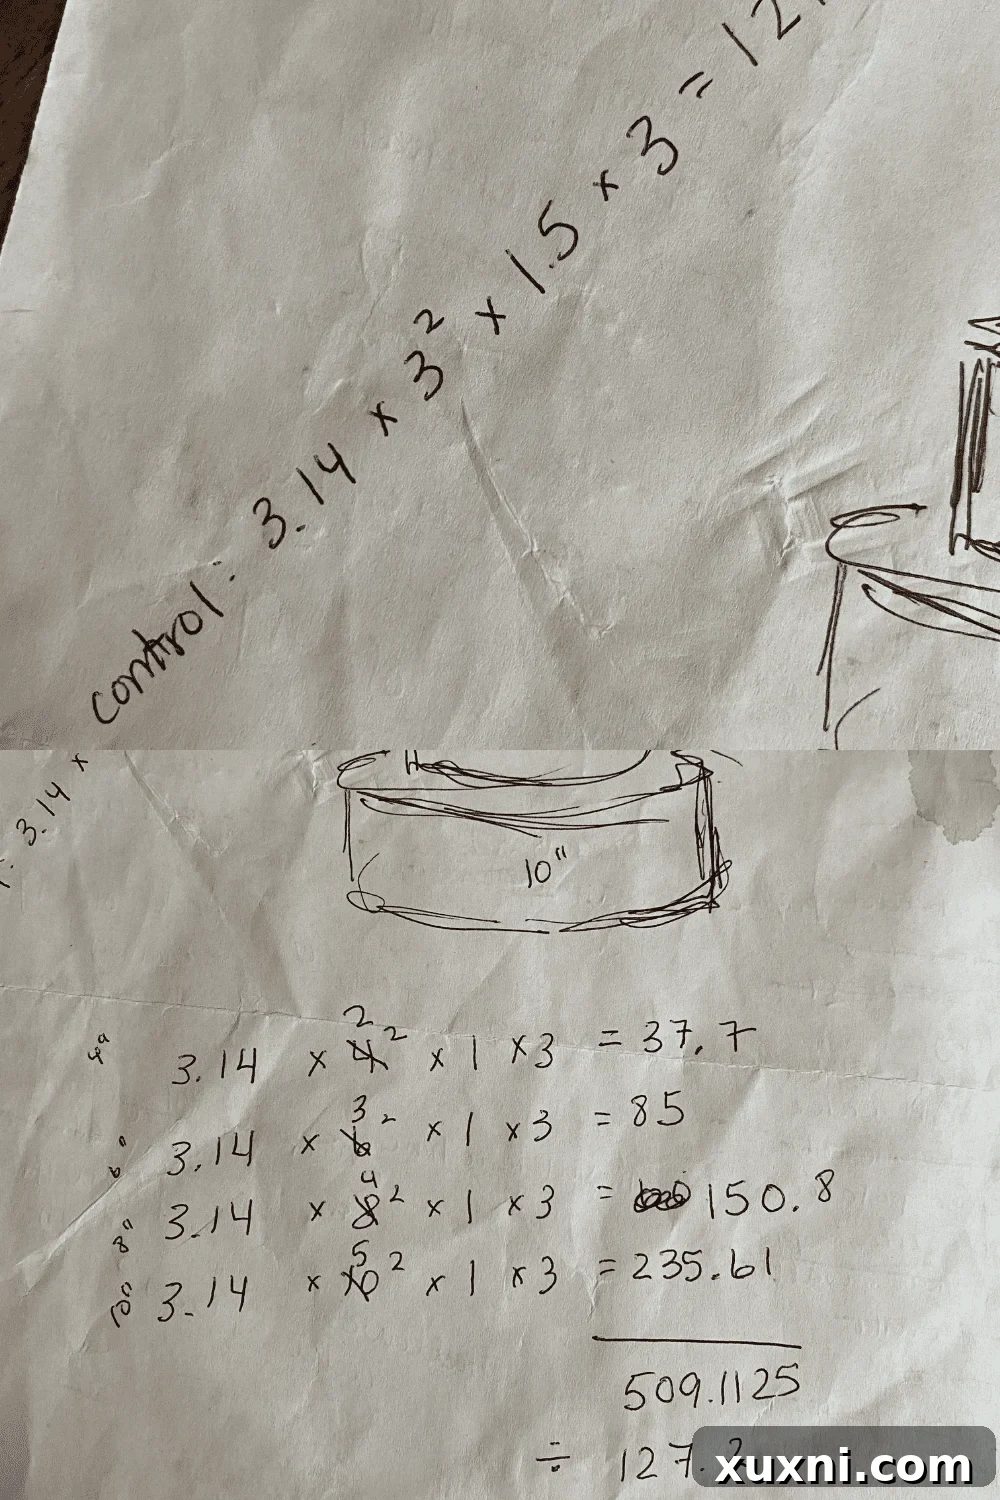 control: 3.14 × 3² × 1.5 × 3 = 12
: 3.14 ×
10"
4" 3.14 × 4 2² × 1 × 3 = 37.7
6" 3.14 × 6 3² × 1 × 3 = 85
8" 3.14 × 8 4² × 1 × 3 = 150.8
10" 3.14 × 10 5² × 1 × 3 = 235.61
509.1125
÷ 127.2
xuxni.com